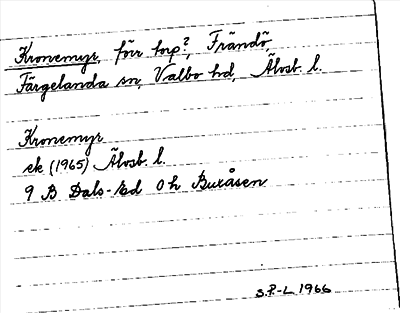 Kronemyr, förr torp?, Frändö,
Färgelanda sn, Valbo hd, Älvsb. l.
Kronemyr
ek (1965) Älvsb. l.
9 B Dals-Ed 0 h Buxåsen
S.P.-L 1966